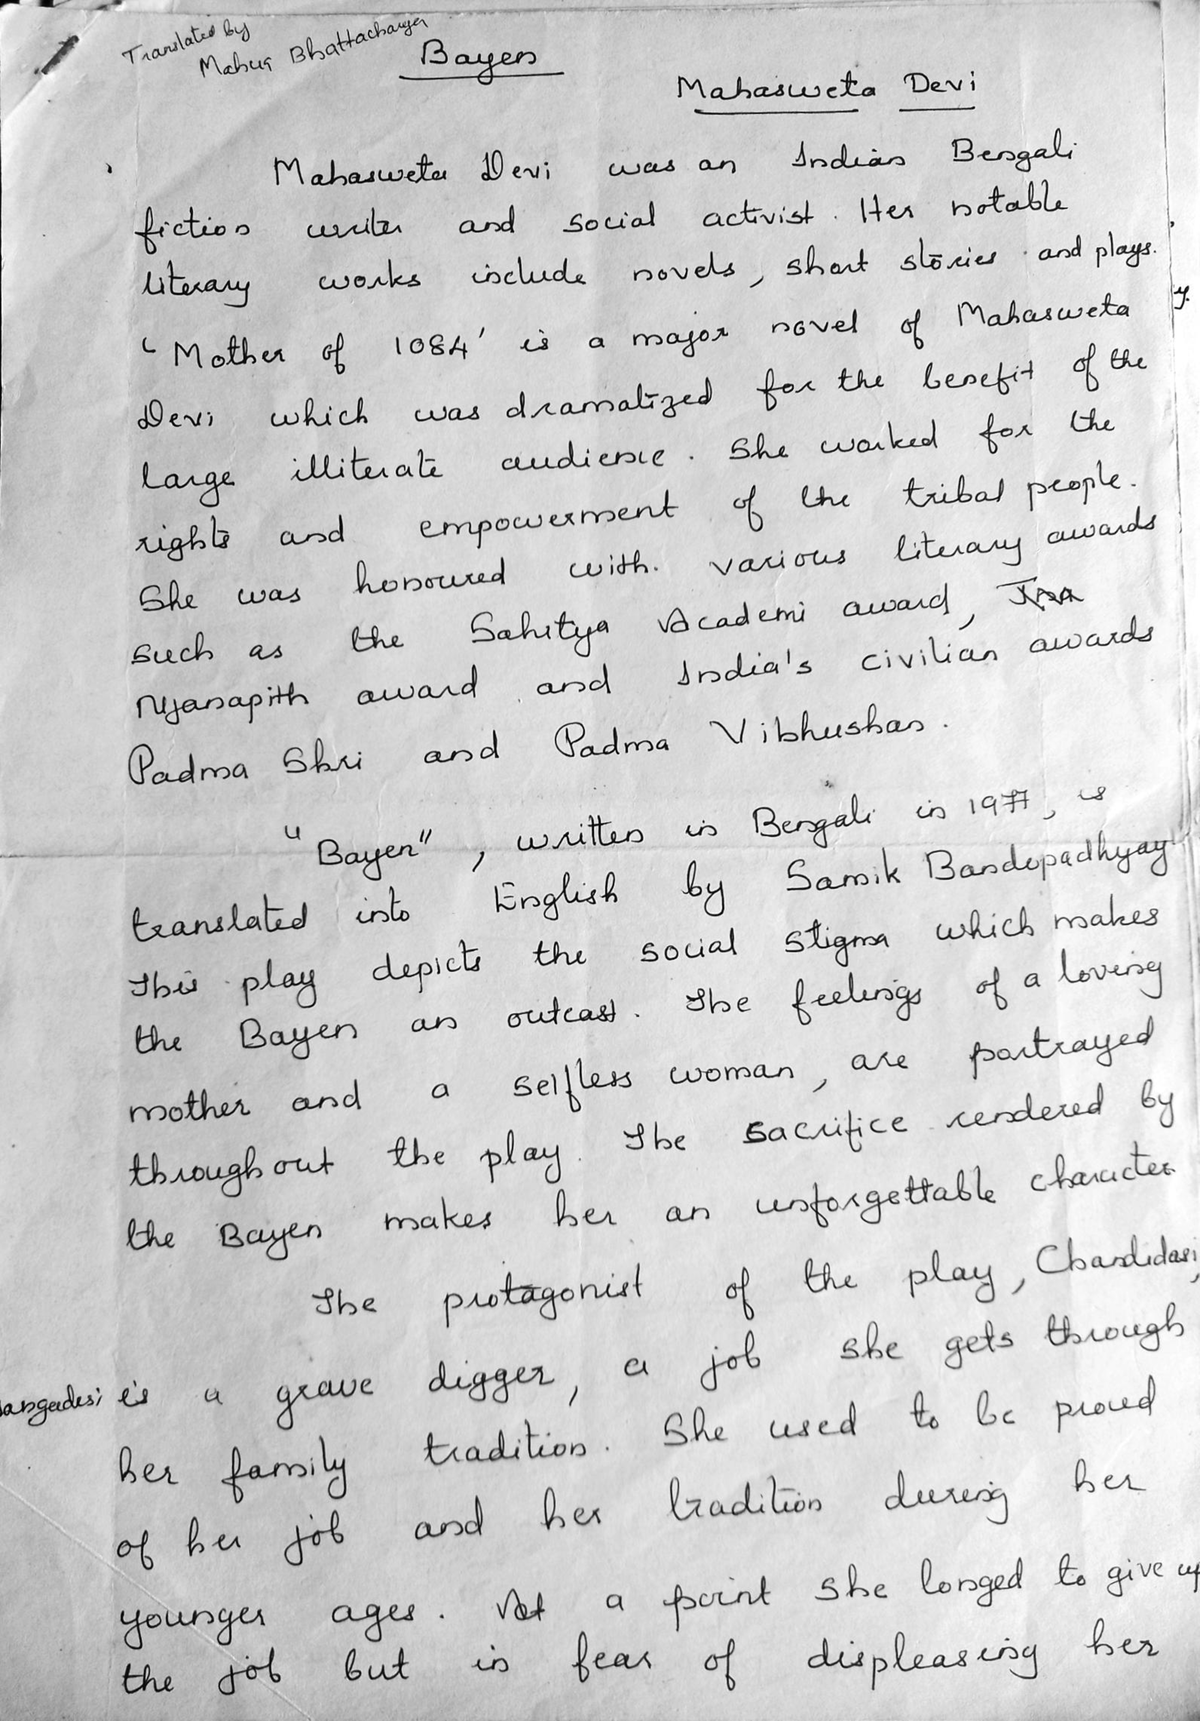 Translated by
Mahua Bhattacharya
Bayen
Mahasweta Devi
Mahasweta Devi was an Indian Bengali
fiction writer and social activist. Her notable
literary works include novels, short stories and plays.
'Mother of 1084' is a major novel of Mahasweta
Devi which was dramatized for the benefit of the
large illiterate audience. She worked for the
rights and empowerment of the tribal people.
She was honoured with. various literary awards
such as the Sahitya Academi award,
Nyanapith award and India's civilian awards
Padma Shri and Padma Vibhushan.
"Bayen", written in Bengali in 1971, is
translated into English by Samik Bandopadhyay
This play depicts the social stigma which makes
the Bayen an outcast. The feelings of a loving
mother and a selfless woman, are portrayed
throughout the play. The sacrifice rendered by
the Bayen makes her an unforgettable character
The protagonist of the play, Chandidasi,
is a grave digger, a job she gets through
her family tradition. She used to be proud
of her job and her tradition during her
younger ages. At a point she longed to give up
the job but in fear of displeasing her